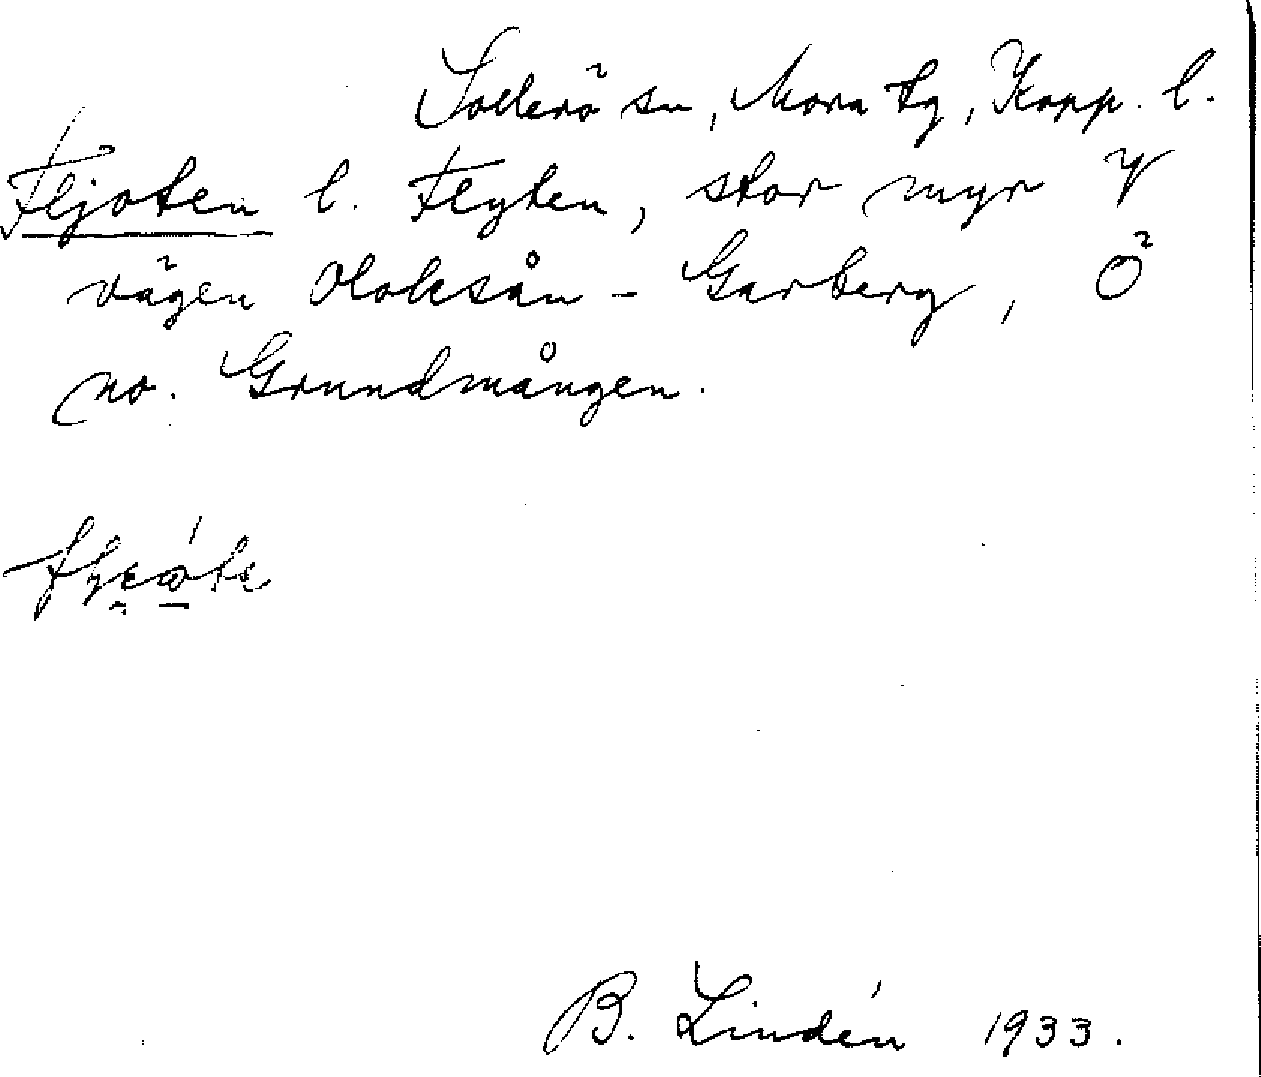 Sollerö sn, Mora tg, Kopp. l.
Fljoten l. Flyten, stor myr V
vägen Oloksån - Garberg, Ö
no. Grundmången.
B. Lindén 1933.